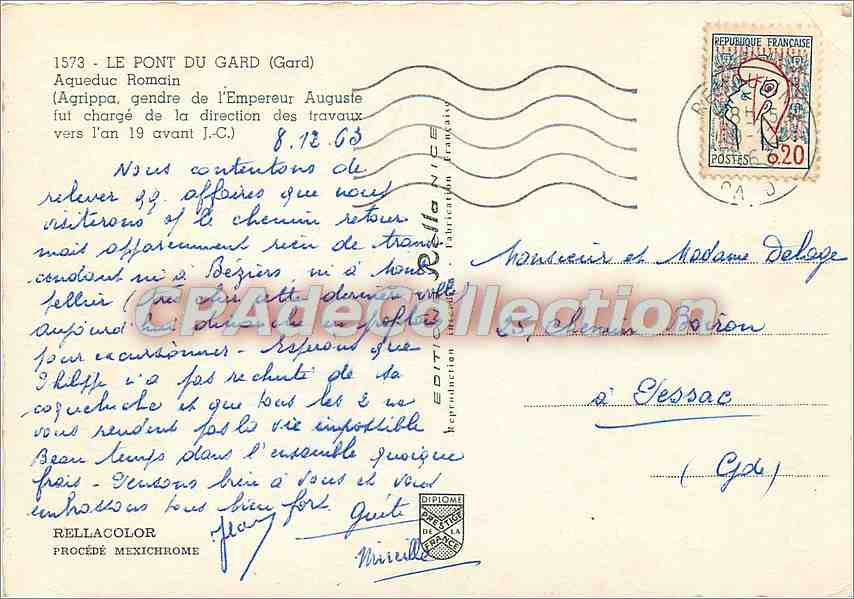 1573 - LE PONT DU GARD (Gard)
Aqueduc Romain
(Agrippa, gendre de l'Empereur Auguste
fut chargé de la direction des travaux
vers l'an 19 avant J.-C.)
8.12.63
Nous contentons de
relever qq. affaires que nous
visiterons sf le chemin retour
mais apparemment rien de trans
cendant ni à Béziers ni à Mont
pellier (très cher cette dernière ville)
aujourd'hui dimanche en profitons
pour excursionner - Espérons que
Philippe n'a pas rechuté de sa
coqueluche et que tous les 2 ne
vous rendent pas la vie impossible
Beau temps dans l'ensemble quoique
frais - Pensons bien à vous et vous
embrassons tous bien fort.
Jean
Guite
Mireille
RELLACOLOR
PROCÉDÉ MEXICHROME
EDITIONS Rella NICE
Reproduction interdite - Fabrication Française
DIPLOME
PRESTIGE
DE LA
FRANCE
REPUBLIQUE FRANÇAISE
POSTES 0,20
Monsieur et Madame Delage
Chemin Boiron
à Pessac
(Gde)
CPAdeCollection